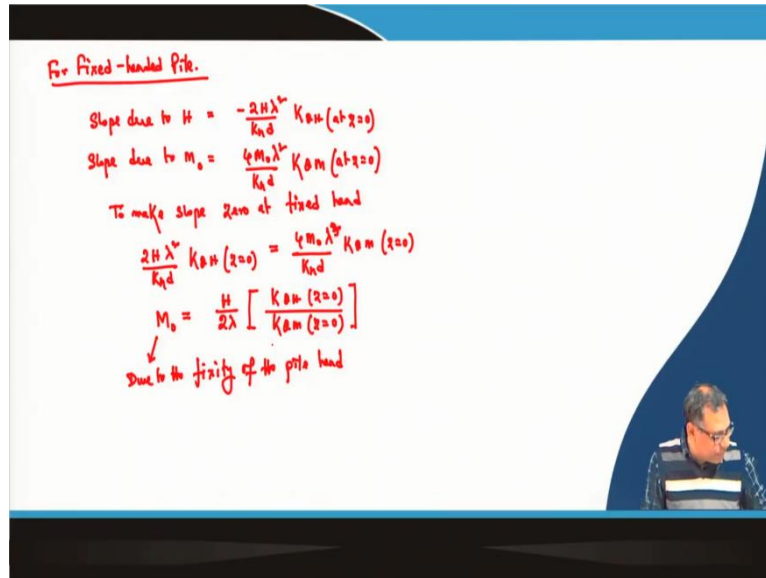 For Fixed-headed Pile.
Slope due to H = -2Hλ²/Kₕd K_θH (at z=0)
Slope due to M₀ = 4M₀λ³/Kₕd K_θM (at z=0)
To make slope zero at fixed head
2Hλ²/Kₕd K_θH (z=0) = 4M₀λ³/Kₕd K_θM (z=0)
M₀ = H/2λ [K_θH (z=0)/K_θM (z=0)]
Due to the fixity of the pile head